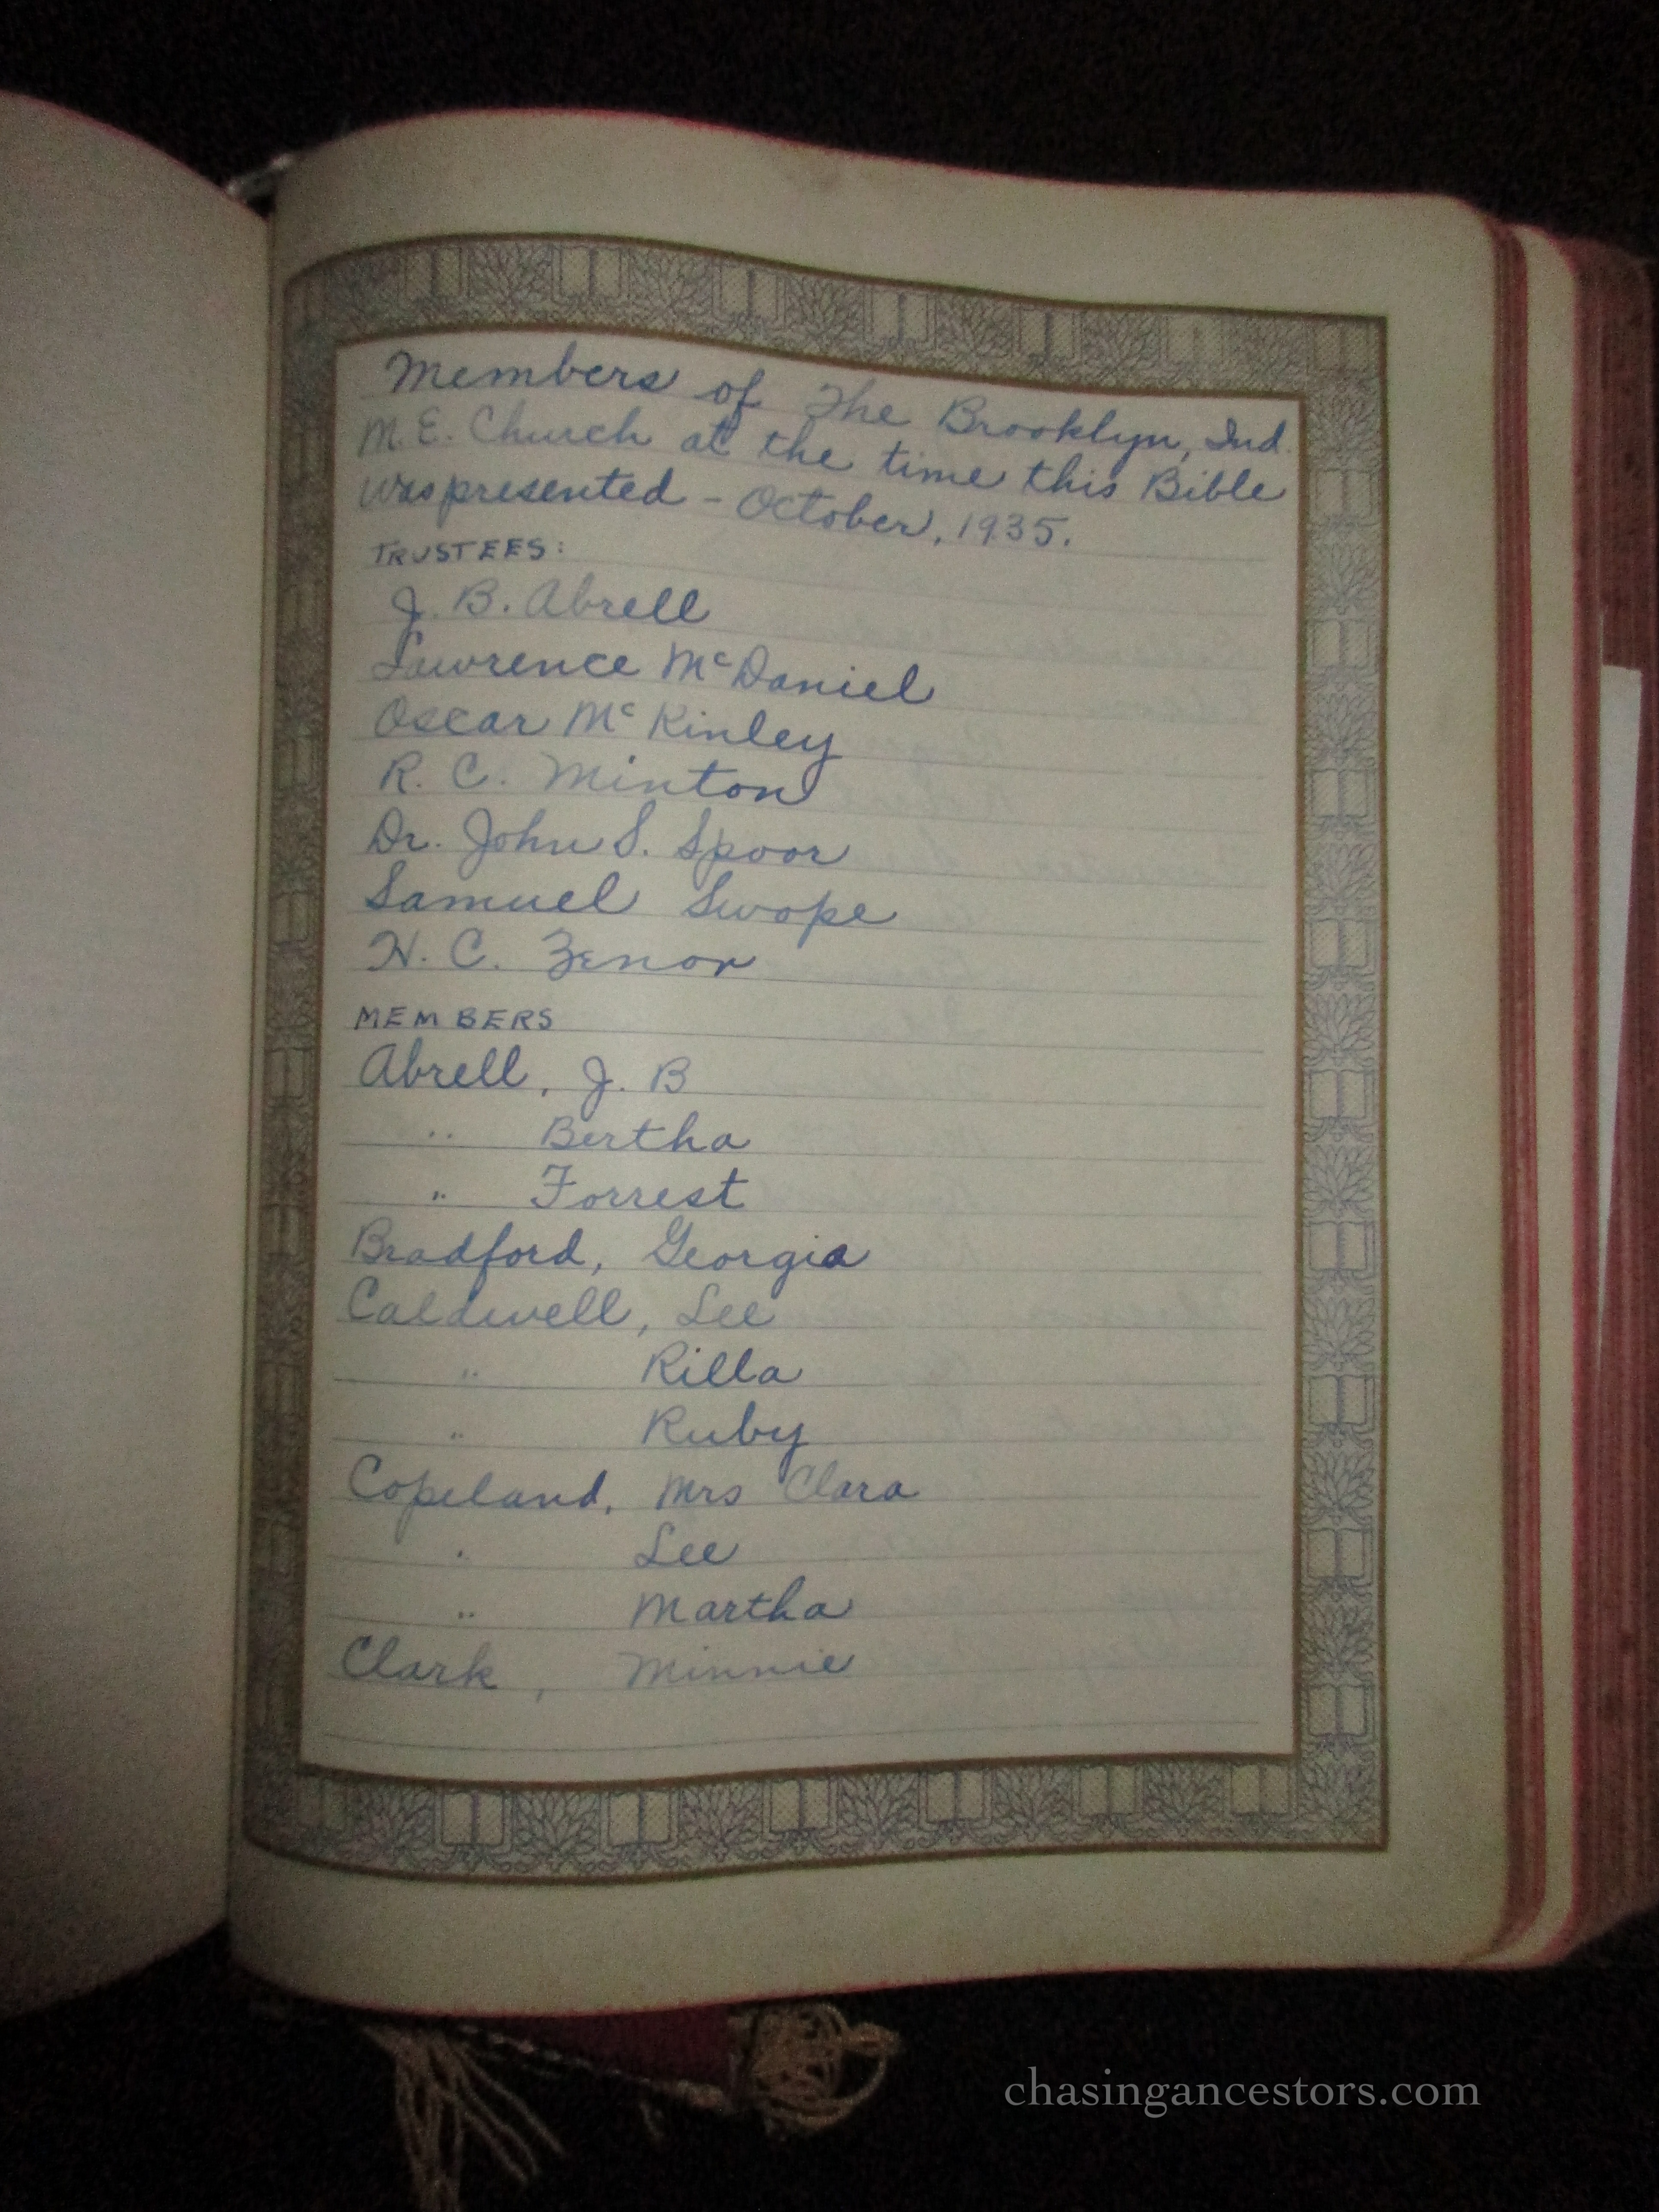 Members of The Brooklyn, Ind.
M.E. Church at the time this Bible
was presented - October, 1935.
TRUSTEES:
J. B. Abrell
Lawrence McDaniel
Oscar McKinley
R. C. Minton
Dr. John S. Spoor
Samuel Swope
H. C. Zenor
MEMBERS
Abrell, J. B
" Bertha
" Forrest
Bradford, Georgia
Caldwell, Lee
" Rilla
" Ruby
Copeland, Mrs Clara
" Lee
" Martha
Clark, Minnie
chasingancestors.com